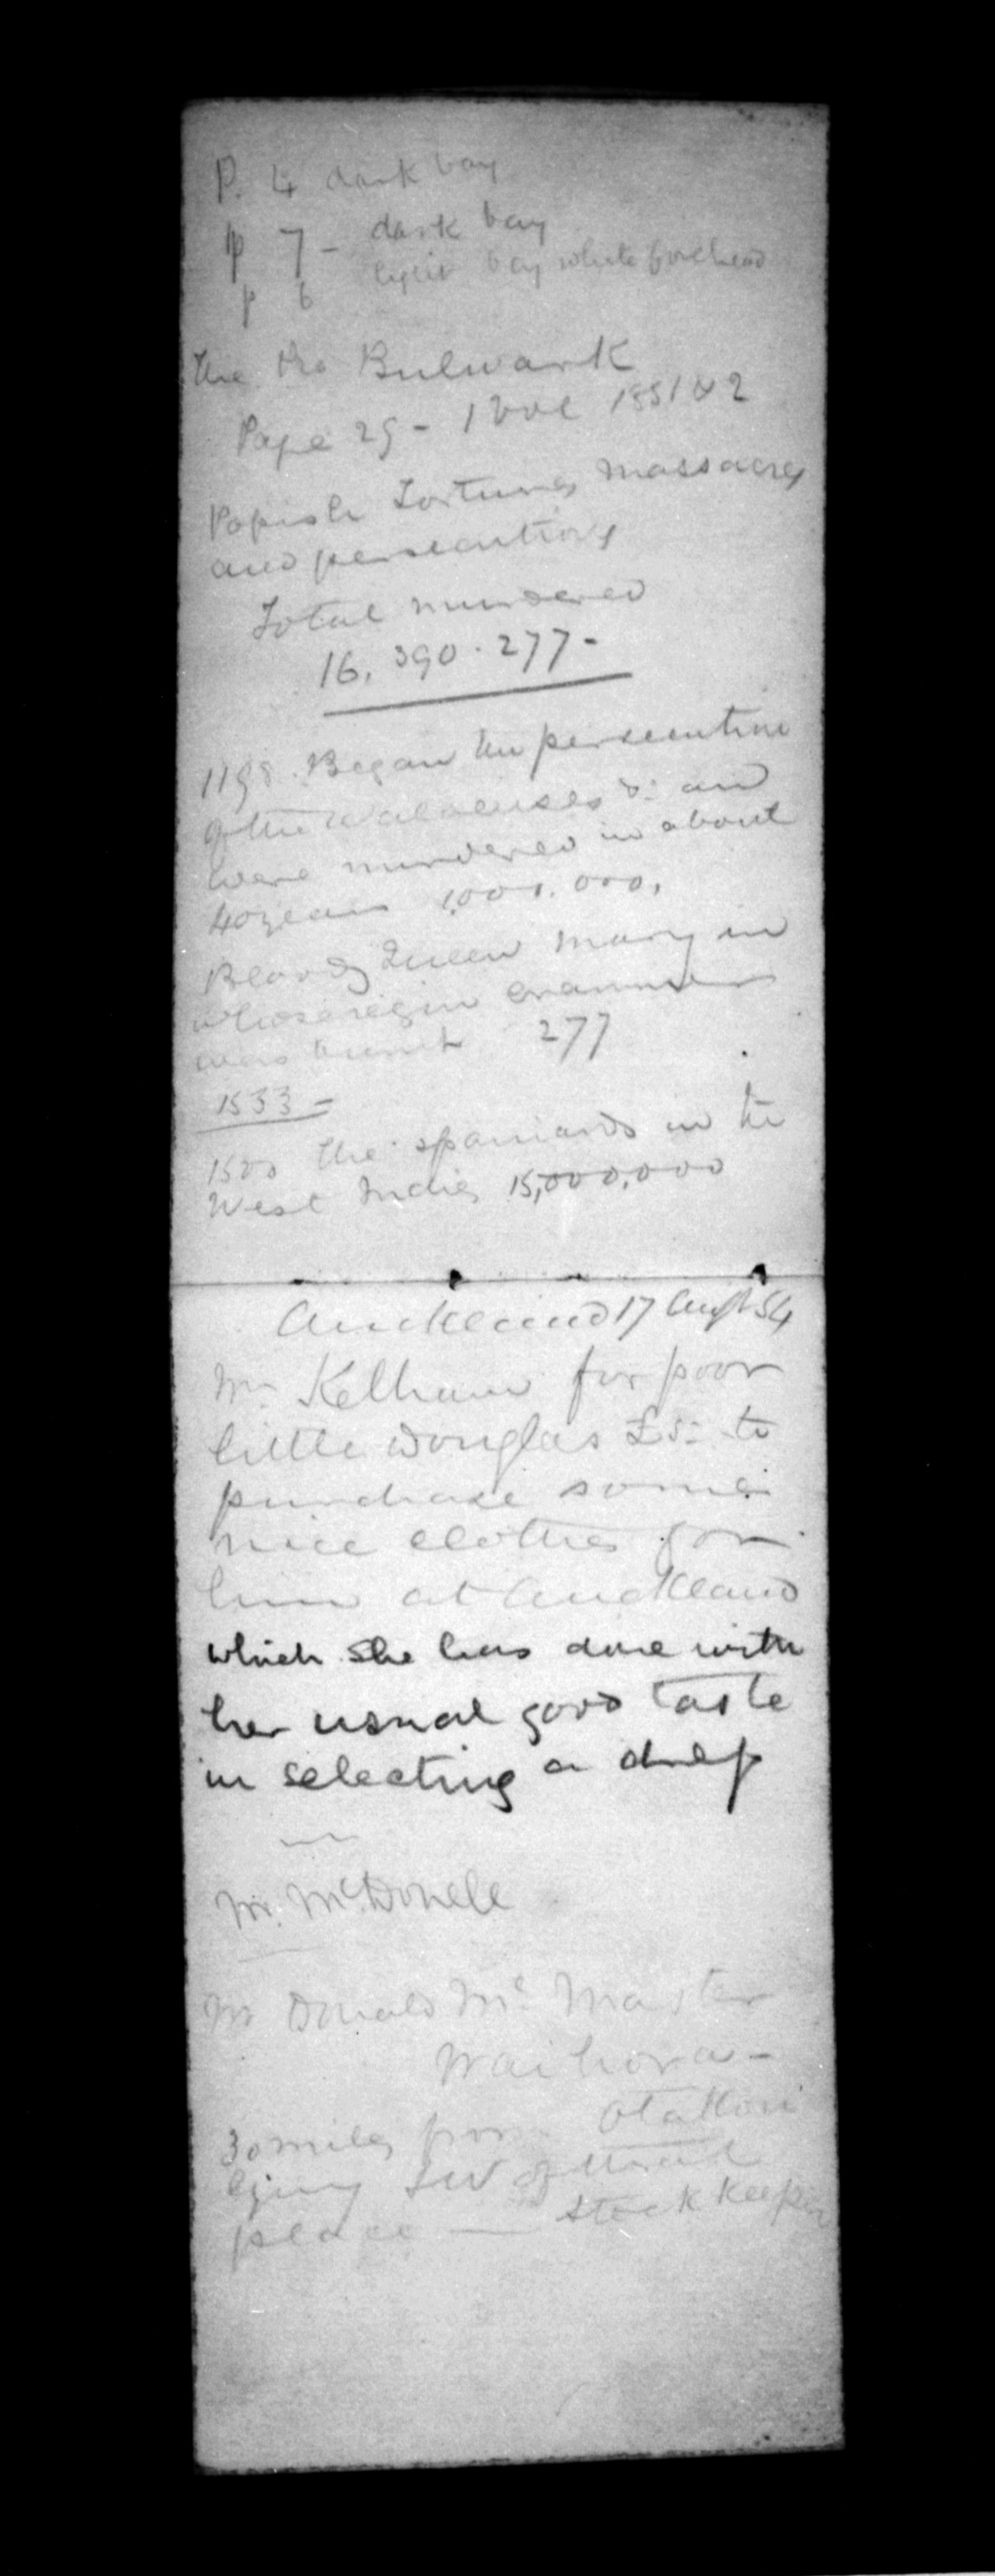 P. 4 dark bay
p 7 - dark bay
p 6 light bay white forehead
The Pro Bulwark
Page 29 - 1 vol 1851 & 2
Popish Tortures, Massacres
and persecutions
Total murdered
16,390.277-
1198. Began the persecution
of the Waldenses &: and
were murdered in about
40 years 1,000.000,
Bloody Queen Mary in
whose reign Cranmer
was burnt 277
1533 -
1500 the spaniards in the
West Indies 15,000,000
Auckland 17 Augt 54
Mrs Kelham for poor
little Douglas £5- to
purchase some
nice clothes for
him at Auckland
which she has done with
her usual good taste
in selecting a drep
Mr. McDonell
Mr Donald Mc Master
Waihora -
30 miles from
lying SW of that
place — stock keeper